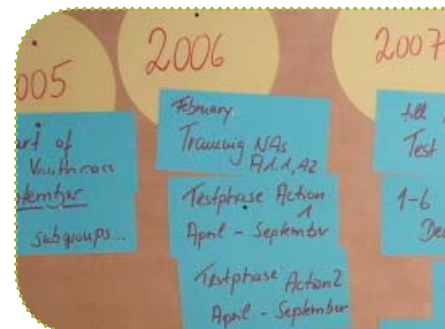 005
art of
Youthpass
September
subgroups...
2006
February
Training NAs
A1.1, A2
Testphase Action
1
April - September
Testphase Action 2
April - September
2007
till
Test
1-6
De